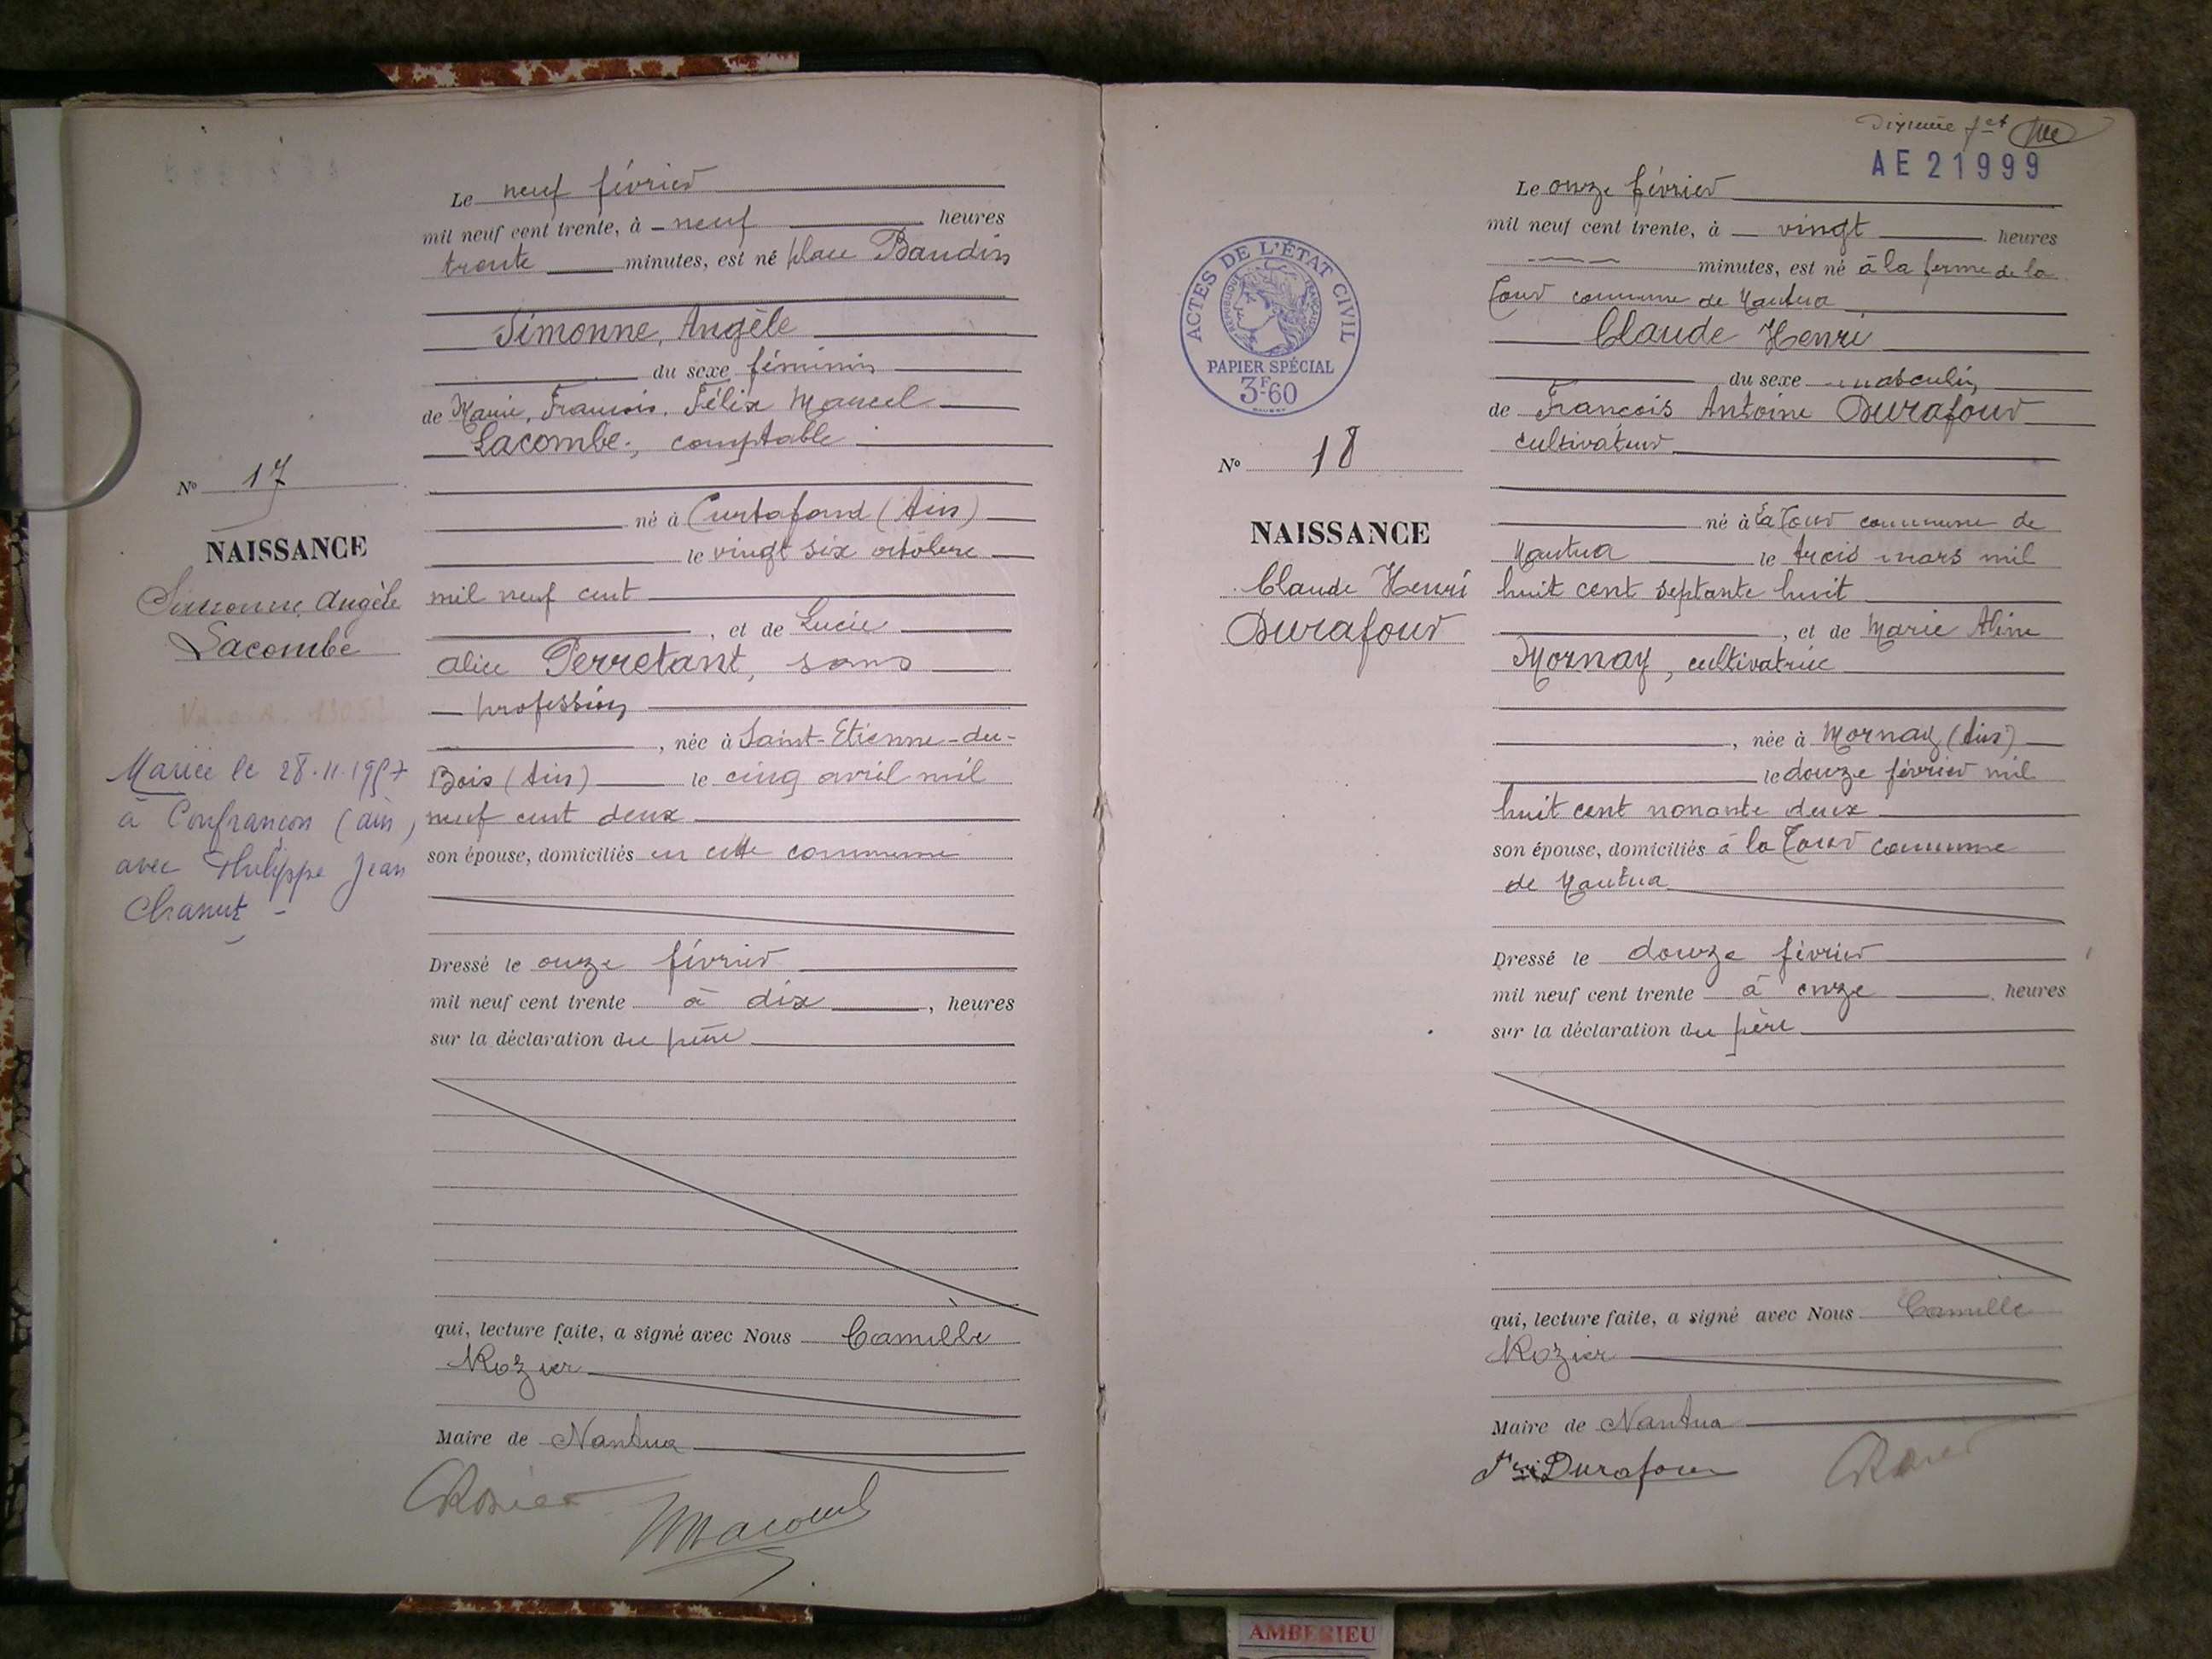 Le neuf février
mil neuf cent trente, à neuf heures
trente minutes, est né place Baudin
Simonne, Angèle
du sexe féminin
de Marie, François, Félix Marcel
Lacombe, comptable
né à Curtafond (Ain)
le vingt six octobre
mil neuf cent
, et de Lucie
Alice Perretant, sans
profession
, née à Saint-Etienne-du-
Bois (Ain) le cinq avril mil
neuf cent deux
son épouse, domiciliés en cette commune
Dressé le onze février
mil neuf cent trente à dix , heures
sur la déclaration du père
qui, lecture faite, a signé avec Nous Camille
Rozier
Maire de Nantua
CRozier
No 17
NAISSANCE
Simonne Angèle
Lacombe
Mariée le 28.11.1957
à Confrançon (ain)
avec Philippe Jean
Chanut -
Dixième f et
AE 21999
ACTES DE L'ÉTAT CIVIL
RÉPUBLIQUE FRANÇAISE
PAPIER SPÉCIAL
3F60
No 18
NAISSANCE
Claude Henri
Durafour
Le onze février
mil neuf cent trente, à vingt heures
minutes, est né à la ferme de la
Tour commune de Nantua
Claude Henri
du sexe masculin
de François Antoine Durafour
cultivateur
né à La Tour commune de
Nantua le trois mars mil
huit cent septante huit
, et de Marie Aline
Mornay, cultivatrice
, née à Mornay (Ain)
le douze février mil
huit cent nonante deux
son épouse, domiciliés à la Tour commune
de Nantua
Dressé le douze février
mil neuf cent trente à onze heures
sur la déclaration du père
qui, lecture faite, a signé avec Nous Camille
Rozier
Maire de Nantua
Durafour
AMBERIEU